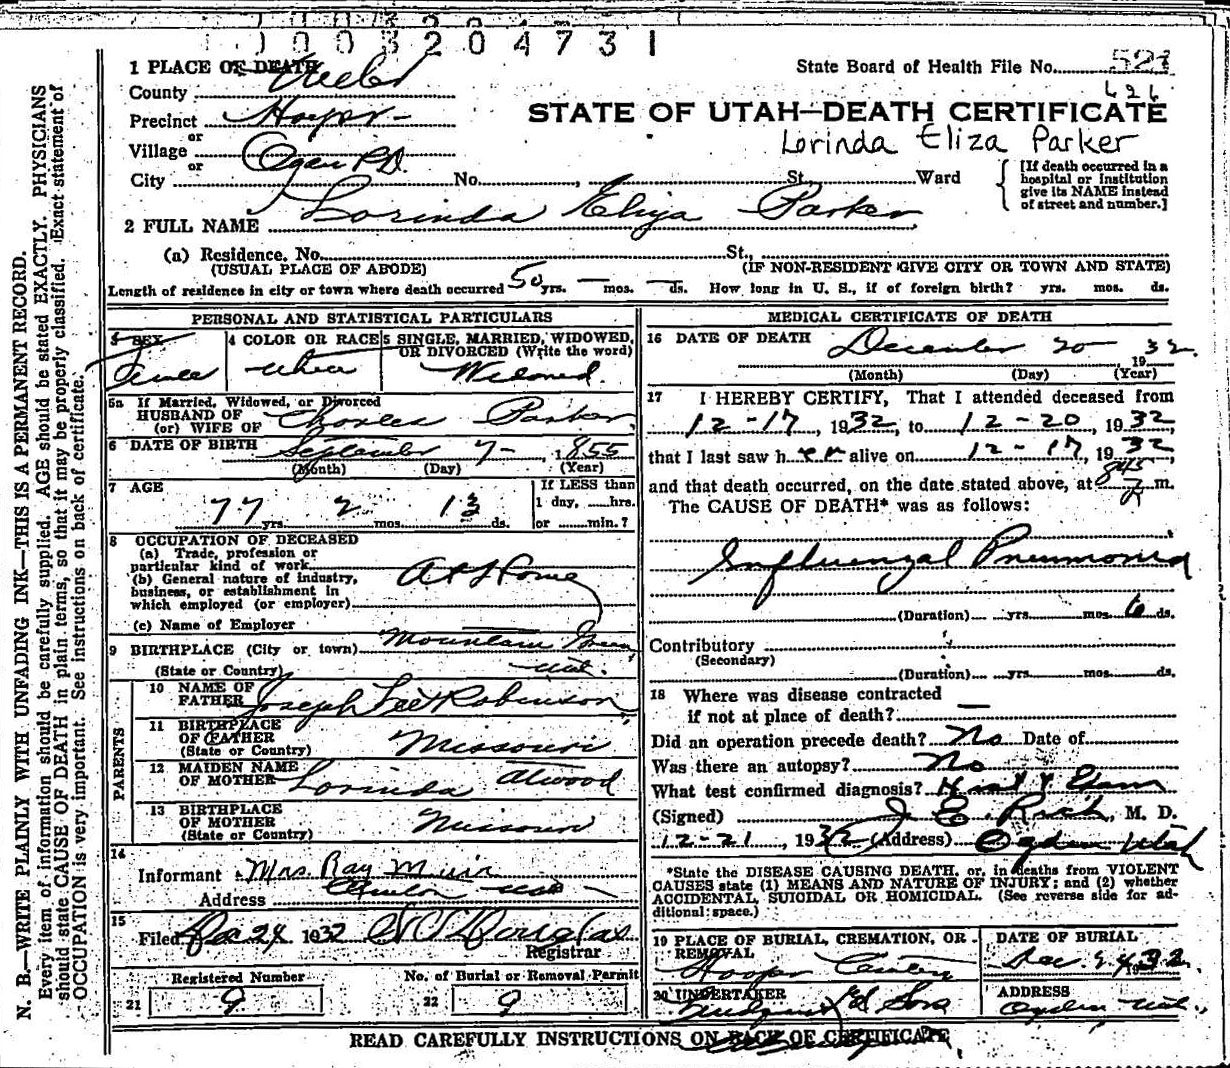 1003204731
1 PLACE OF DEATH
State Board of Health File No. 521
County Weber
626
Precinct Hooper
STATE OF UTAH—DEATH CERTIFICATE
or
Village Ogden R.D.
Lorinda Eliza Parker
or
City No. , St. Ward
[If death occurred in a hospital or institution give its NAME instead of street and number.]
2 FULL NAME Lorinda Eliza Parker
(a) Residence. No. St.,
(USUAL PLACE OF ABODE) (IF NON-RESIDENT GIVE CITY OR TOWN AND STATE)
Length of residence in city or town where death occurred 50 yrs. — mos. — ds. How long in U. S., if of foreign birth? yrs. mos. ds.
PERSONAL AND STATISTICAL PARTICULARS
3 SEX
4 COLOR OR RACE
5 SINGLE, MARRIED, WIDOWED, OR DIVORCED (Write the word)
Female White Widowed
5a If Married, Widowed, or Divorced
HUSBAND OF
(or) WIFE OF Charles Parker
6 DATE OF BIRTH September 7- 1855
(Month) (Day) (Year)
7 AGE
77 yrs. 2 mos. 13 ds.
If LESS than
1 day, hrs.
or min.?
8 OCCUPATION OF DECEASED
(a) Trade, profession or
particular kind of work
(b) General nature of industry,
business, or establishment in
which employed (or employer)
At Home
(c) Name of Employer
9 BIRTHPLACE (City or town) Mountain Green
(State or Country) Utah.
PARENTS
10 NAME OF
FATHER Joseph Lee Robinson
11 BIRTHPLACE
OF FATHER
(State or Country) Missouri
12 MAIDEN NAME
OF MOTHER Lorinda Atwood
13 BIRTHPLACE
OF MOTHER
(State or Country) Missouri
14
Informant Mrs. Ray Muir
Address
15
Filed Dec 24 1932
Registrar
Registered Number
21 9
No. of Burial or Removal Permit
22 9
MEDICAL CERTIFICATE OF DEATH
16 DATE OF DEATH
December 20 - 1932
(Month) (Day) (Year)
17 I HEREBY CERTIFY, That I attended deceased from
12-17, 1932, to 12-20, 1932,
that I last saw her alive on 12-17, 1932
and that death occurred, on the date stated above, at m.
The CAUSE OF DEATH* was as follows:
Influenzal Pneumonia
(Duration) yrs. mos. 6 ds.
Contributory
(Secondary)
(Duration) yrs. mos. ds.
18 Where was disease contracted
if not at place of death? —
Did an operation precede death? No Date of
Was there an autopsy? No
What test confirmed diagnosis?
(Signed) J. E. Rich, M. D.
12-21, 1932 (Address) Ogden Utah
*State the DISEASE CAUSING DEATH, or, in deaths from VIOLENT
CAUSES state (1) MEANS AND NATURE OF INJURY; and (2) whether
ACCIDENTAL, SUICIDAL OR HOMICIDAL. (See reverse side for ad-
ditional space.)
19 PLACE OF BURIAL, CREMATION, OR
REMOVAL
Hooper
DATE OF BURIAL
Dec. 24, 1932
20 UNDERTAKER
& Sons
ADDRESS
Ogden Utah
READ CAREFULLY INSTRUCTIONS ON BACK OF CERTIFICATE
N. B.—WRITE PLAINLY WITH UNFADING INK—THIS IS A PERMANENT RECORD.
Every item of information should be carefully supplied. AGE should be stated EXACTLY. PHYSICIANS
should state CAUSE OF DEATH in plain terms, so that it may be properly classified. Exact statement of
OCCUPATION is very important. See instructions on back of certificate.